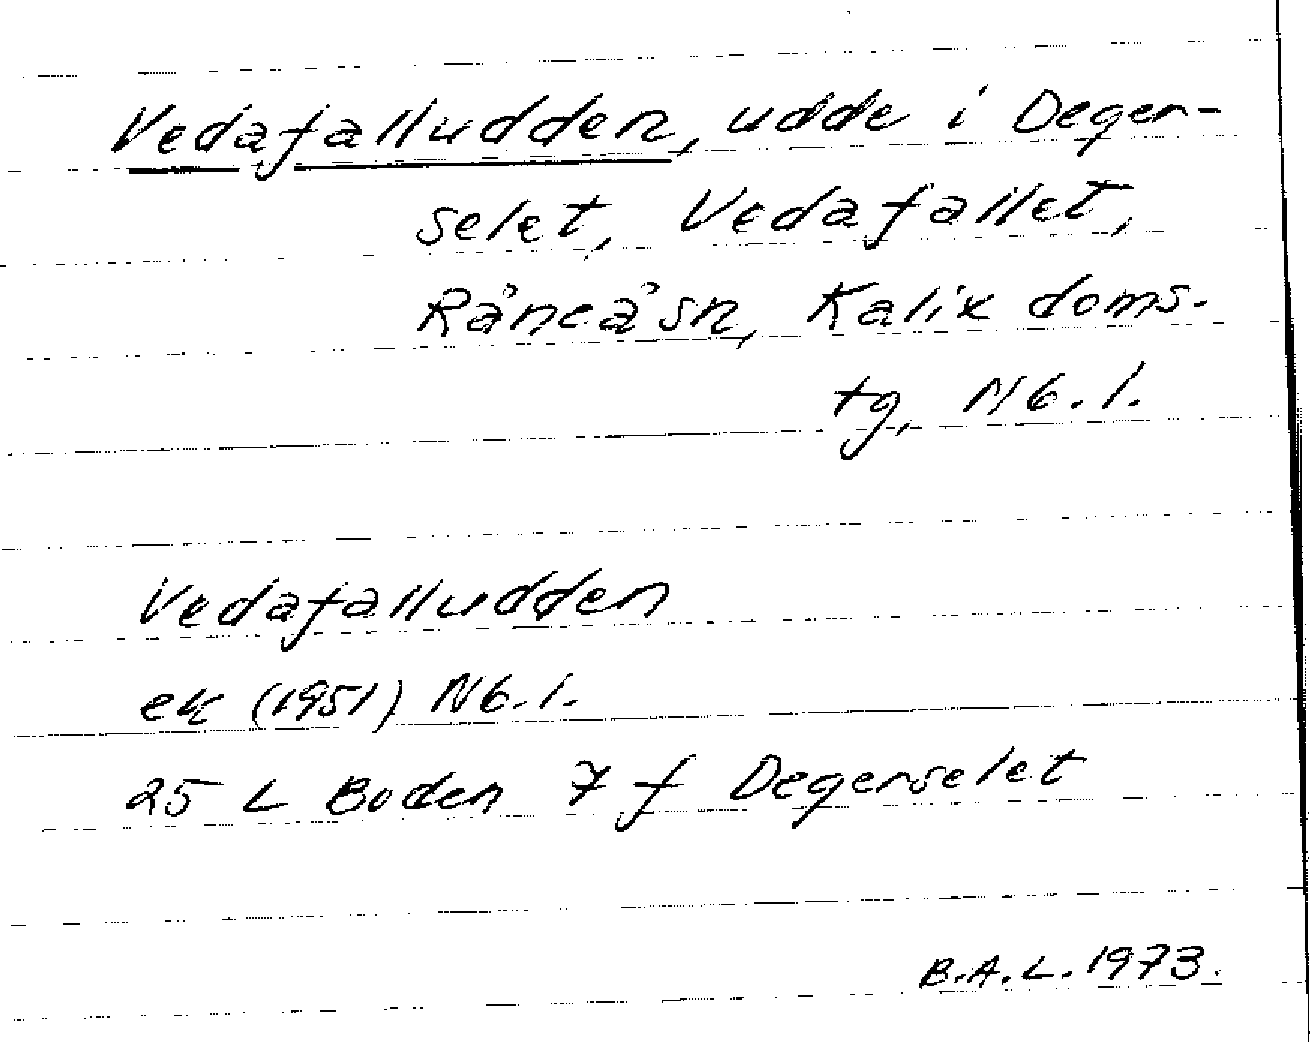 Vedafalludden, udde i Deger-
selet, Vedafallet,
Råneå sn, Kalix doms-
tg, Nb. l.
Vedafalludden
ek (1951) Nb. l.
25 L Boden 7 f Degerselet
B.A.L. 1973.